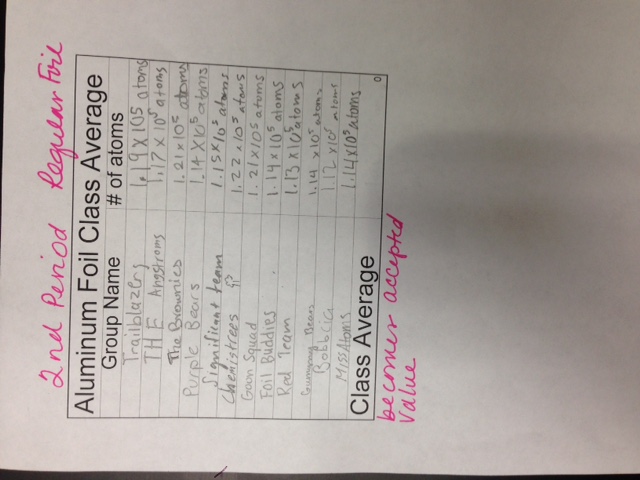 2nd Period Regular Foil
Aluminum Foil Class Average
Group Name # of atoms
Trailblazers 1.19 x 105 atoms
THE Angstroms 1.17 x 10⁵ atoms
The Brownies 1.21 x 10⁵ atoms
Purple Bears 1.14 x 10⁵ atoms
Significant team 1.15 x 10⁵ atoms
Chemistrees 1.22 x 10⁵ atoms
Goon Squad 1.21 x 10⁵ atoms
Foil Buddies 1.14 x 10⁵ atoms
Red Team 1.13 x 10⁵ atoms
Gummy Bears 1.14 x 10⁵ atoms
1.12 x 10⁵ atoms
Miss Atoms 1.14 x 10⁵ atoms
Class Average 0
becomes accepted
value